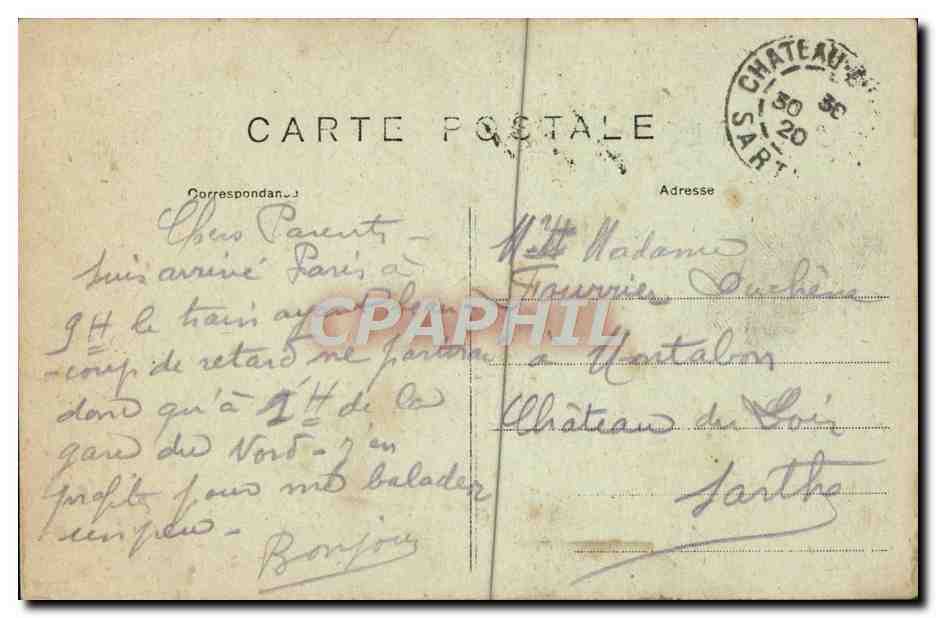 CARTE POSTALE
Correspondance
Adresse
CHATEAU
30
20
SART
Chers Parents -
suis arrivé Paris à
9H le train ayant beau
-coup de retard ne partirai
donc qu'à 1H de la
gare du Nord - J'en
profite pour me balader
un peu -
Bonjour
Madame
Fourrier Duchêne
à Montabon
Château du Loir
Sarthe
CPAPHIL